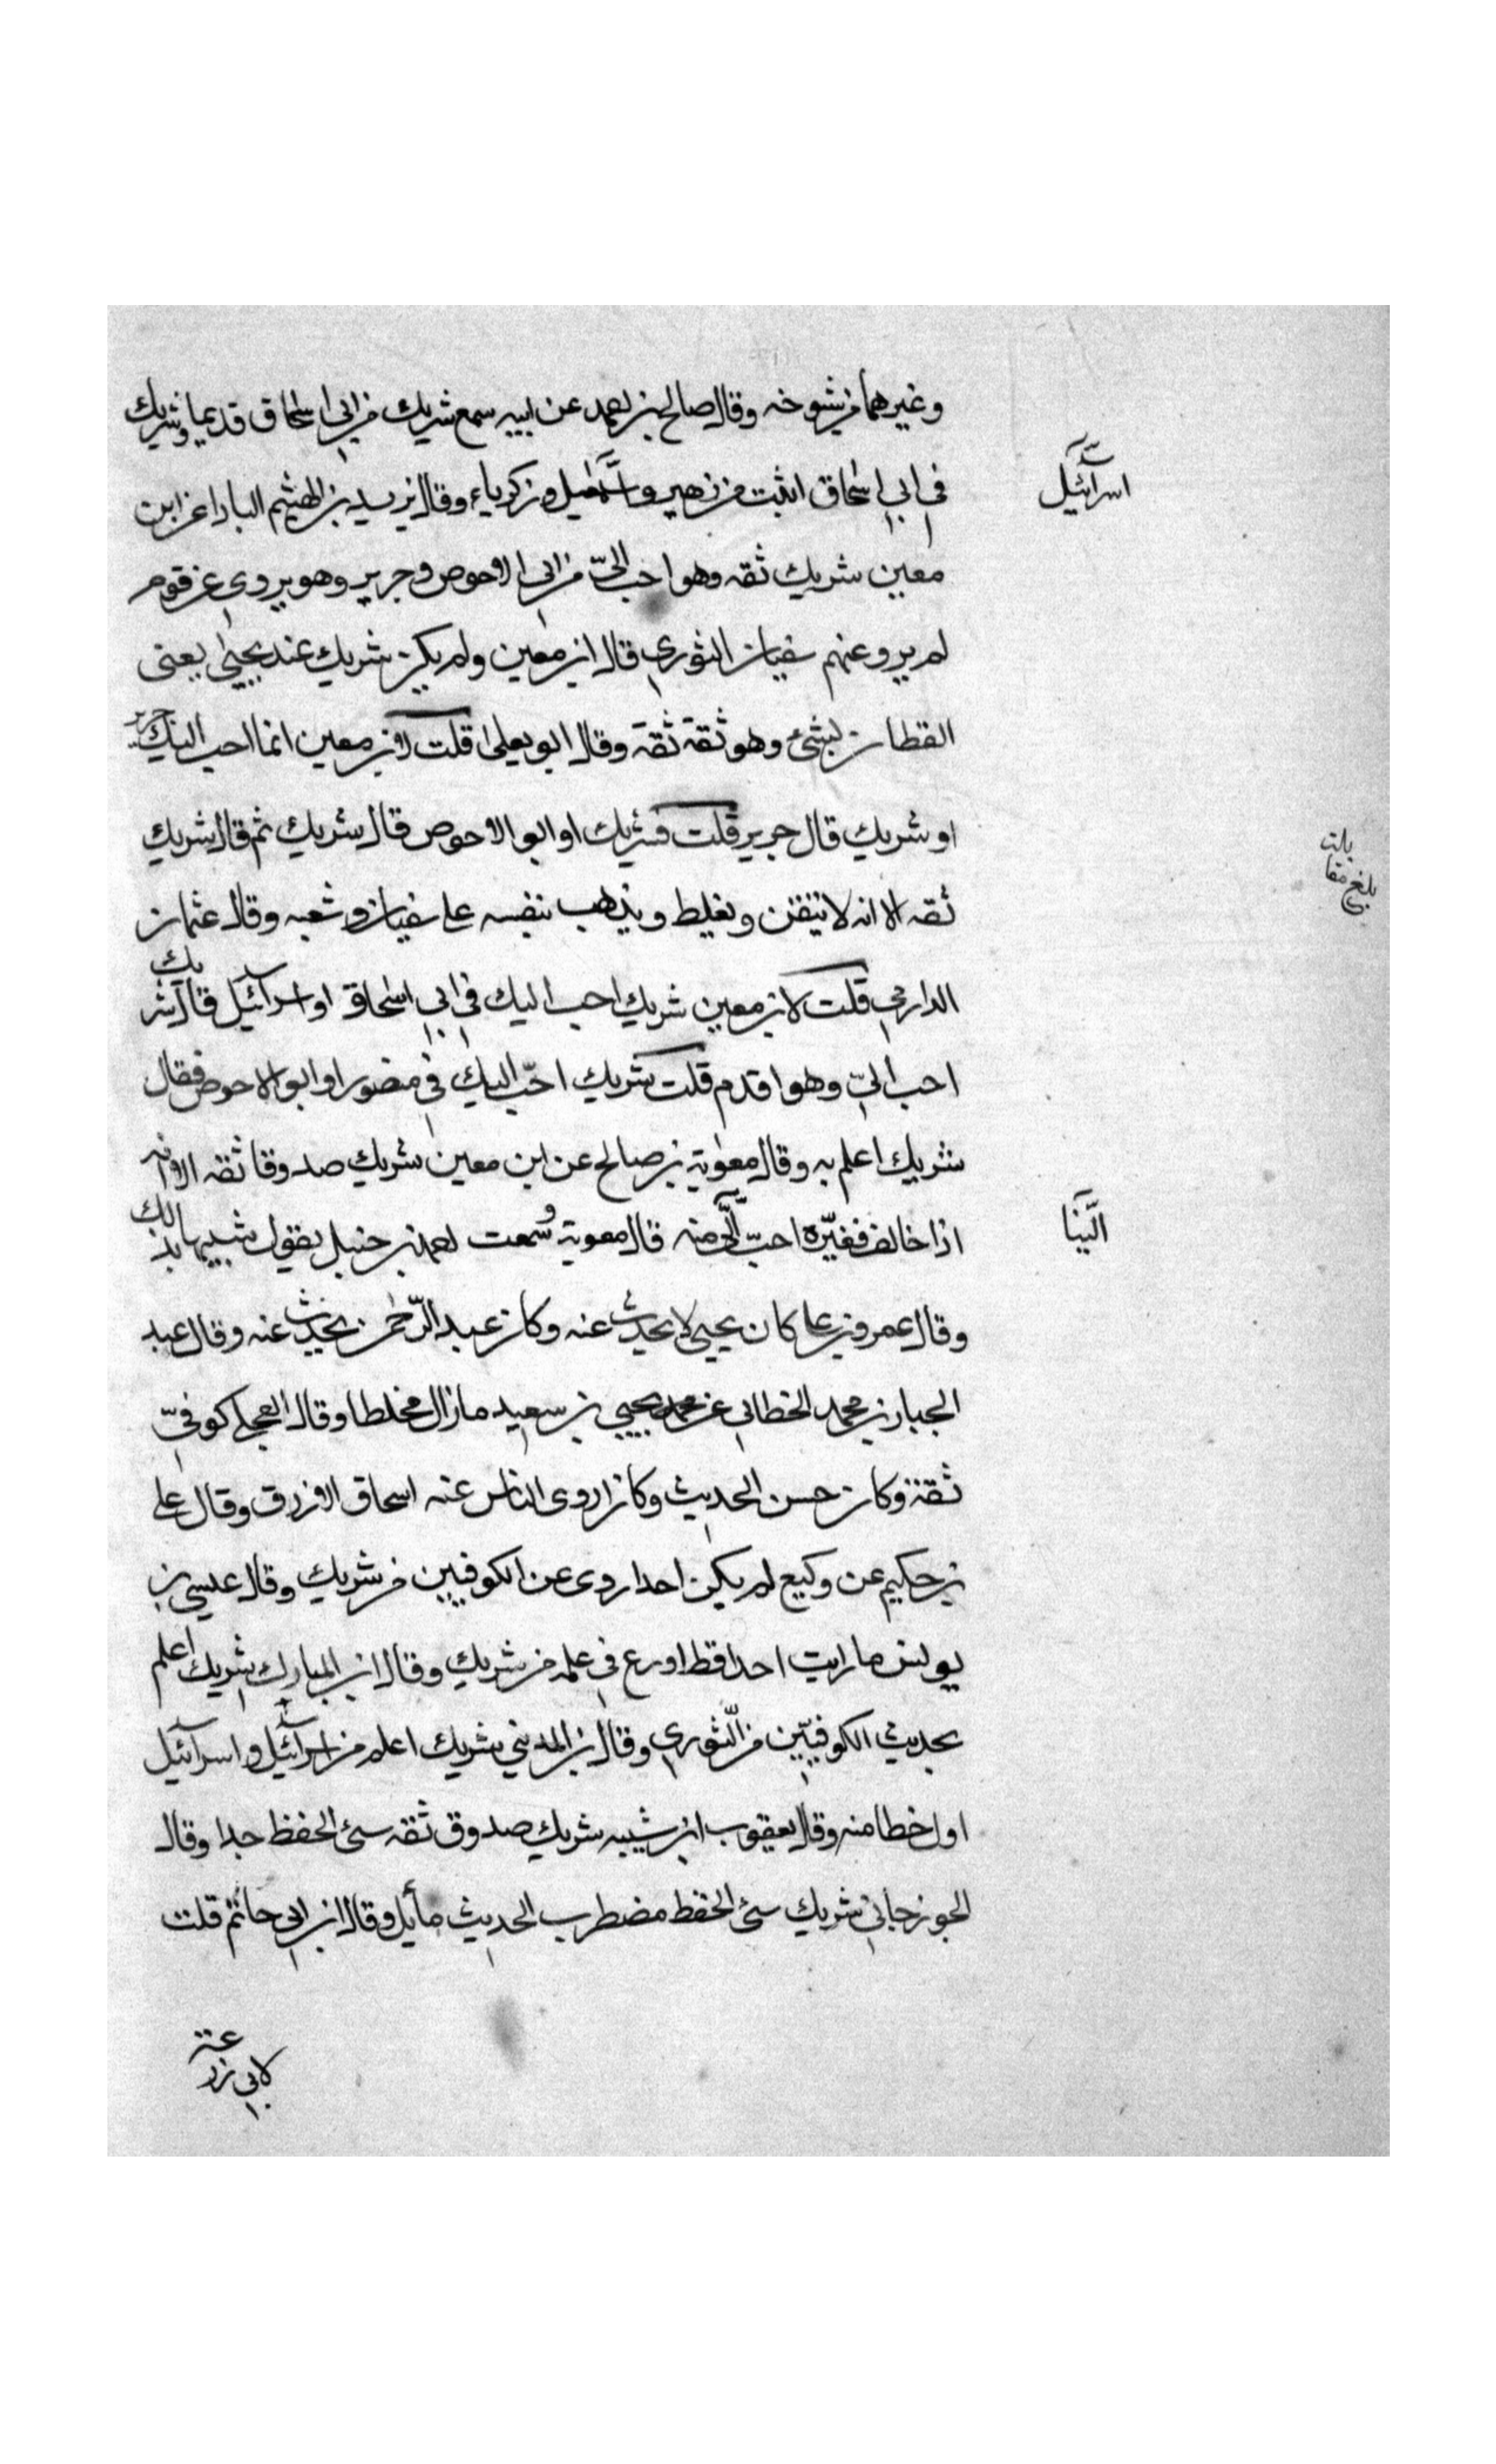 وغيرهما من شيوخه وقال صالح بن احمد عن ابيه سمع شريك من ابي اسحاق قديما وشريك
في ابي اسحاق اثبت من زهير واسمعيل وزكرياء وقال يزيد بن الهيثم البادا عن ابن
اسرائيل
معين شريك ثقه وهو احب الىّ من ابي الاحوص وجرير وهو يروى عن قوم
لم يرو عنهم سفيان الثوري قال ابن معين ولم يكن شريك عند يحيى يعنى
القطان بشئ وهو ثقة ثقة وقال ابو يعلى قلت لابن معين انما احب اليك جرير
او شريك قال جرير قلت فشريك او ابو الاحوص قال شريك ثم قال شريك
بلغ مقابلت
ثقه الا انه لا يتقن ويغلط ويذهب بنفسه على سفيان وشعبه وقال عثمان
الدارمي قلت لابن معين شريك احب اليك في ابي اسحاق او اسرائيل قال شريك
احب اليّ وهو اقدم قلت شريك احبّ اليك في منصور او ابو الاحوص فقال
شريك اعلم به وقال معوية بن صالح عن ابن معين شريك صدوقا ثقه الا انه
اذا خالف فغيره احبّ الىّ منه قال معوية وسمعت احمد بن حنبل يقول شبيها بذلك
الينا
وقال عمرو بن على كان يحيى لا يحدث عنه وكان عبد الرّحمن يحدث عنه وقال عبد
الجبار بن محمد الخطابي عن يحيى بن سعيد ما زال مخلطا وقال العجلي كوفيّ
ثقة وكان حسن الحديث وكان اروى الناس عنه اسحاق الازرق وقال على
بن حكيم عن وكيع لم يكن احد اروى عن الكوفيين من شريك وقال عيسى بن
يونس ما رايت احدا قط اورع في علمه من شريك وقال ابن المبارك شريك اعلم
بحديث الكوفيّين من الثوري وقال بن المديني شريك اعلم من اسرائيل واسرائيل
اول خطا منه وقال يعقوب ابن شيبه شريك صدوق ثقه سئ الحفظ جدا وقال
الجوزجاني شريك سئ الحفظ مضطرب الحديث مأيل وقال ابن ابي حاتم قلت
لابي زرعة